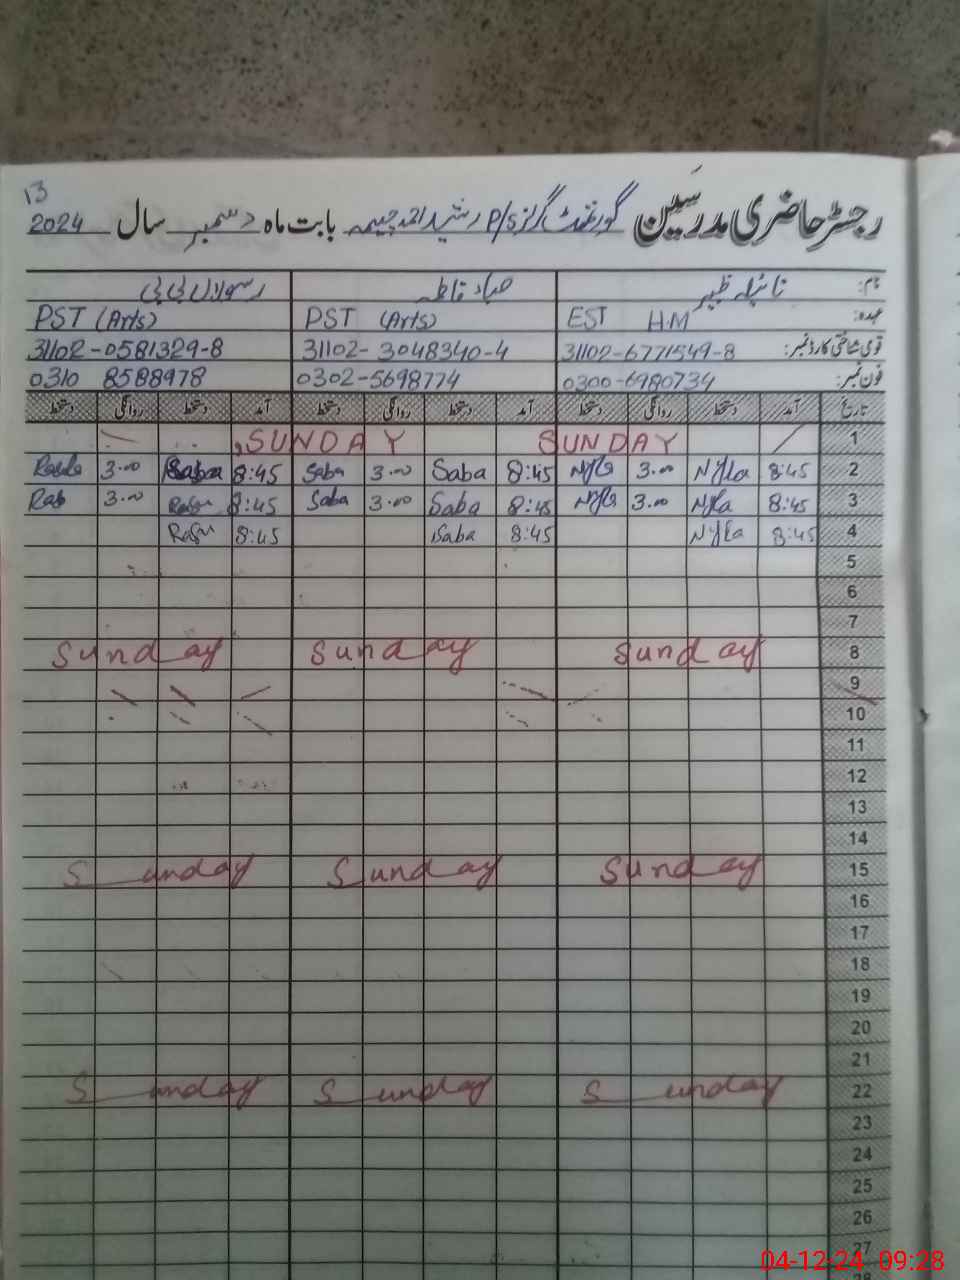 13
رجسٹر حاضری مدرسین گورنمنٹ گرلز P/S رشید احمد چیمہ بابت ماہ دسمبر سال 2024
نام: نائیلہ ظہیر صباء فاطمہ رسولاں بی بی
عہدہ: EST H.M PST (Arts) PST (Arts)
قومی شناختی کارڈ نمبر: 31102-6771549-8 31102-3048340-4 31102-0581329-8
فون نمبر: 0300-6980734 0302-5698774 0310 8588978
تاریخ آمد دستخط روانگی دستخط آمد دستخط روانگی دستخط آمد دستخط روانگی دستخط
1 SUNDAY SUNDAY
2 8:45 Nyla 3.00 Nyla 8:45 Saba 3.00 Saba 8:45 3.00
3 8:45 Nyla 3.00 Nyla 8:45 Saba 3.00 Saba 8:45 3.00 Ras
4 8:45 Nyla 8:45 Saba 8:45
5
6
7
8 Sunday Sunday Sunday
9
10
11
12
13
14
15 Sunday Sunday Sunday
16
17
18
19
20
21
22 Sunday Sunday Sunday
23
24
25
26
27
28
04-12-24 09:28